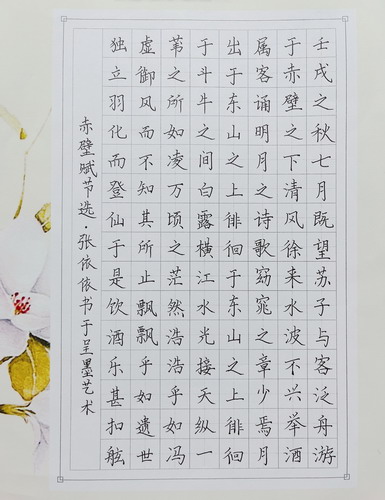 壬戌之秋七月既望苏子与客泛舟游
于赤壁之下清风徐来水波不兴举酒
属客诵明月之诗歌窈窕之章少焉月
出于东山之上徘徊于东山之上徘徊
于斗牛之间白露横江水光接天纵一
苇之所如凌万顷之茫然浩浩乎如冯
虚御风而不知其所止飘飘乎如遗世
独立羽化而登仙于是饮酒乐甚扣舷
赤壁赋节选·张依依书于呈墨艺术